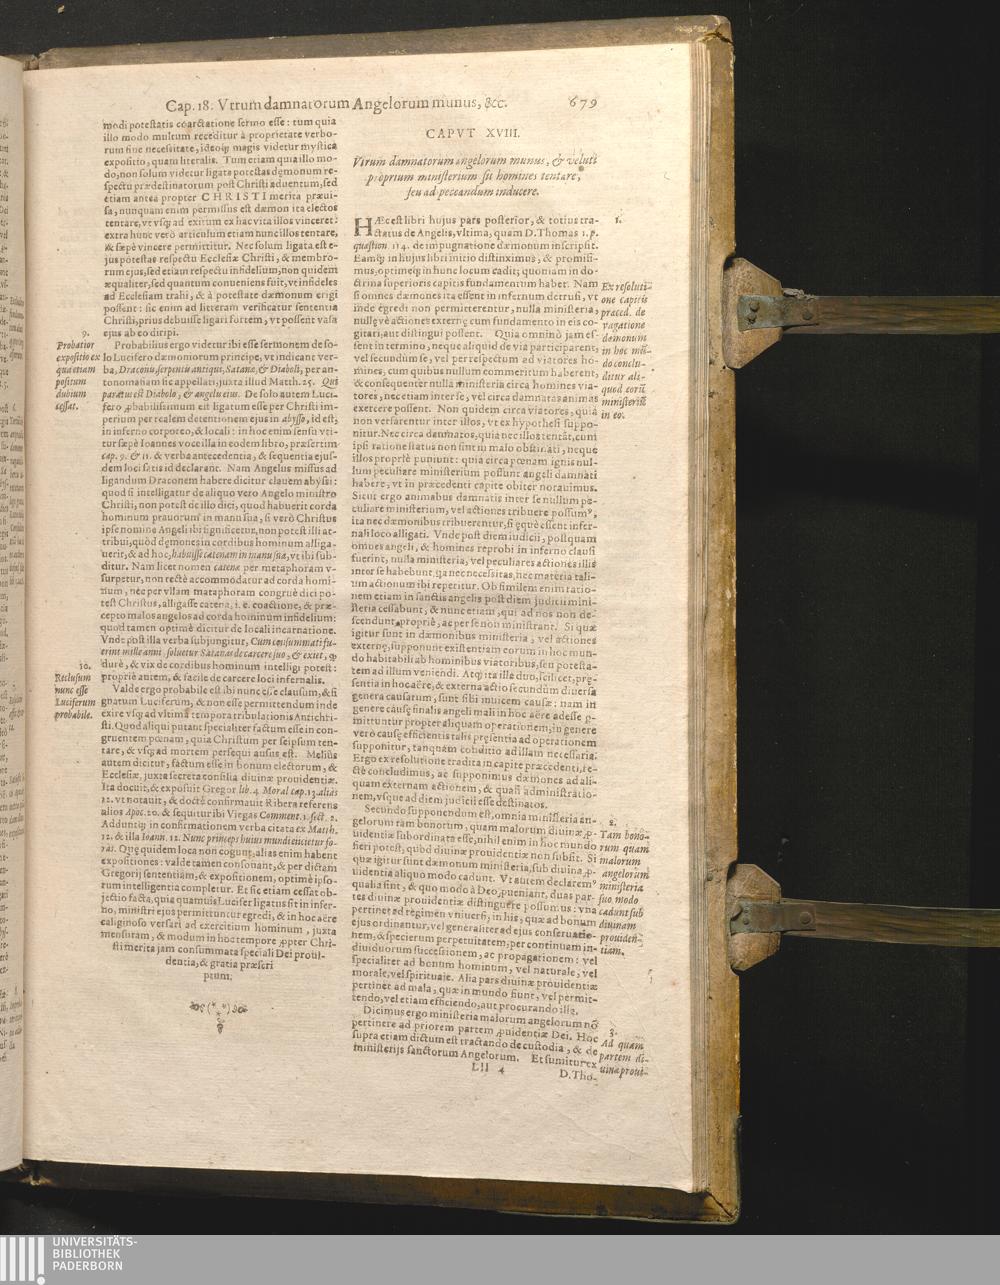 Cap. 18. Vtrum damnatorum Angelorum munus, &c. 679
modi potestatis coarctatione sermo esse: tum quia
illo modo multum receditur à proprietate verbo-
rum sine necessitate, ideoq; magis videtur mystica
expositio, quam literalis. Tum etiam quia illo mo-
do, non solum videtur ligata potestas dęmonum re-
spectu prædestinatorum post Christi aduentum, sed
etiam antea propter CHRISTI merita præui-
sa, nunquam enim permissus est dæmon ita electos
tentare, vt vsq; ad exitum ex hac vita illos vinceret:
extra hunc verò articulum etiam nunc illos tentare,
& sæpè vincere permittitur. Nec solum ligata est e-
jus potestas respectu Ecclesiæ Christi, & membro-
rum ejus, sed etiam respectu infidelium, non quidem
æqualiter, sed quantum conueniens fuit, vt infideles
ad Ecclesiam trahi, & à potestate dæmonum erigi
possent: sic enim ad litteram verificatur sententia
Christi, prius debuisse ligari fortem, vt possent vasa
ejus ab eo diripi.
9.
Probatior
expositio ex
qua etiam
positum
dubium
cessat.
Probabilius ergo videtur ibi esse sermonem de so-
lo Lucifero dæmoniorum principe, vt indicant ver-
ba, Draconis, serpentis antiqui, Satanæ, & Diaboli, per an-
tonomasiam sic appellati, juxta illud Matth. 25. Qui
paratus est Diabolo, & angelis eius. De solo autem Luci-
fero probabilissimum est ligatum esse per Christi im-
perium per realem detentionem ejus in abysso, id est,
in inferno corporeo, & locali: in hoc enim sensu vti-
tur sæpè Ioannes voce illa in eodem libro, præsertim
cap. 9. & 11. & verba antecedentia, & sequentia ejus-
dem loci satis id declarant. Nam Angelus missus ad
ligandum Draconem habere dicitur clauem abyssi:
quod si intelligatur de aliquo vero Angelo ministro
Christi, non potest de illo dici, quod habuerit corda
hominum prauorum in manu sua, si verò Christus
ipse nomine Angeli ibi significetur, non potest illi at-
tribui, quòd dęmones in cordibus hominum alliga-
uerit, & ad hoc, habuisse catenam in manu sua, vt ibi sub-
ditur. Nam licet nomen catenæ per metaphoram v-
surpetur, non rectè accommodatur ad corda homi-
num, nec per vllam metaphoram congruè dici po-
test Christus, alligasse catena, i. e. coactione, & præ-
cepto malos angelos ad corda hominum infidelium:
quod tamen optimè dicitur de locali incarnatione.
Vnde post illa verba subjungitur, Cum consummati fu-
erint mille anni, soluetur Satanas de carcere suo, & exiet, qp
durè, & vix de cordibus hominum intelligi potest:
propriè autem, & facile de carcere loci infernalis.
10.
Reclusum
nunc esse
Luciferum
probabile.
Valde ergo probabile est ibi nunc esse clausum, & si
gnatum Luciferum, & non esse permittendum inde
exire vsq; ad vltima tempora tribulationis Antichri-
sti. Quod aliqui putant specialiter factum esse in con-
gruentem pœnam, quia Christum per seipsum ten-
tare, & vsq; ad mortem persequi ausus est. Melius
autem dicitur, factum esse in bonum electorum, &
Ecclesiæ, juxta secreta consilia diuinæ prouidentiæ.
Ita docuit, & exposuit Gregor lib. 4. Moral cap. 13. aliàs
12. vt notauit, & doctè confirmauit Ribera referens
alios Apoc. 20. & sequitur ibi Viegas Comment. 1. sect. 2.
Adduntq; in confirmationem verba citata ex Matth.
12. & illa Ioann. 12. Nunc princeps huius mundi eiicietur fo-
ras. Quę quidem loca non cogunt, alias enim habent
expositiones: valde tamen consonant, & per dictam
Gregorij sententiam, & expositionem, optimè ipso-
rum intelligentia completur. Et sic etiam cessat ob-
jectio facta, quia quamuis Lucifer ligatus sit in infer-
no, ministri ejus permittuntur egredi, & in hoc aere
caliginoso versari ad exercitium hominum, juxta
mensuram, & modum in hoc tempore propter Chri-
sti merita jam consummata speciali Dei proui-
dentia, & gratia præscri
ptum.
CAPVT XVIII.
Vtrum damnatorum angelorum munus, & veluti
proprium ministerium sit homines tentare,
seu ad peccandum inducere.
1.
HÆc est libri hujus pars posterior, & totius tra-
ctatus de Angelis, vltima, quam D. Thomas 1. p.
quæstion. 114. de impugnatione dæmonum inscripsit.
Eamq; in hujus libri initio distinximus, & promisi-
mus, optimeq; in hunc locum cadit; quoniam in do-
ctrina superioris capitis fundamentum habet. Nam
si omnes dæmones ita essent in infernum detrusi, vt
inde egredi non permitterentur, nulla ministeria,
nullęvè actiones externę cum fundamento in eis co-
gitari, aut distingui possent. Quia omninò jam es-
sent in termino, neque aliquid de via participarent,
vel secundum se, vel per respectum ad viatores ho-
mines, cum quibus nullum commercium haberent,
& consequenter nulla ministeria circa homines via-
tores, nec etiam inter se, vel circa damnatas animas
exercere possent. Non quidem circa viatores, quia
non versarentur inter illos, vt ex hypothesi suppo-
nitur. Nec circa damnatos, quia nec illos tentāt, cum
ipsi ratione status non sint in malo obstinati, neque
illos propriè puniunt: quia circa pœnam ignis nul-
lum peculiare ministerium possunt angeli damnati
habere, vt in præcedenti capite obiter notauimus.
Sicut ergo animabus damnatis inter se nullum pe-
culiare ministerium, vel actiones tribuere possum9,
ita nec dæmonibus tribuerentur, si ęquè essent infer-
nali loco alligati. Vnde post diem iudicij, postquam
omnes angeli, & homines reprobi in inferno clausi
fuerint, nulla ministeria, vel peculiares actiones illis
inter se habebunt, qa nec necessitas, nec materia tali-
um actionum ibi reperitur. Ob similem enim ratio-
nem etiam in sanctis angelis post diem judicii mini-
steria cessabunt, & nunc etiam, qui ad nos non de-
scendunt, propriè, ac per se non ministrant. Si quæ
igitur sunt in dæmonibus ministeria, vel actiones
externę, supponunt existentiam eorum in hoc mun-
do habitabili ab hominibus viatoribus, seu potesta-
tem ad illum veniendi. Atq; ita illa duo, scilicet, prę-
sentia in hoc aëre, & externa actio secundùm diuersa
genera causarum, sunt sibi inuicem causæ: nam in
genere causę finalis angeli mali in hoc aëre adesse p-
mittuntur propter aliquam operationem, in genere
verò causę efficientis talis pręsentia ad operationem
supponitur, tanquam conditio ad illam necessaria.
Ergo ex resolutione tradita in capite præcedenti, re-
ctè concludimus, ac supponimus dæmones ad ali-
quam externam actionem, & quasi administratio-
nem, vsque ad diem judicii esse destinatos.
Ex resoluti-
one capitis
præced. de
vagatione
dæmonum
in hoc mū-
do conclu-
ditur ali-
quod eorū
ministeriū
in eo.
Secundo supponendum est, omnia ministeria an-
gelorum tam bonorum, quam malorum diuinæ p-
uidentiæ subordinata esse, nihil enim in hoc mundo
fieri potest, quod diuinæ prouidentiæ non subsit. Si
quæ igitur sunt dæmonum ministeria, sub diuina p-
uidentia aliquo modo cadunt. Vt autem declarem9
qualia sint, & quo modo à Deo proueniant, duas par-
tes diuinæ prouidentiæ distinguere possumus: vna
pertinet ad regimen vniuersi, in his, quæ ad bonum
ejus ordinantur, vel generaliter ad ejus conseruatio-
nem, & specierum perpetuitatem, per continuam in-
diuiduorum successionem, ac propagationem: vel
specialiter ad bonum hominum, vel naturale, vel
morale, vel spirituale. Alia pars diuinæ prouidentiæ
pertinet ad mala, quæ in mundo fiunt, vel permit-
tendo, vel etiam efficiendo, aut procurando illa.
2.
Tam bono-
rum quam
malorum
angelorum
ministeria
suo modo
cadunt sub
diuinam
prouiden-
tiam.
Dicimus ergo ministeria malorum angelorum nō
pertinere ad priorem partem prouidentiæ Dei. Hoc
supra etiam dictum est tractando de custodia, & de
ministerijs sanctorum Angelorum. Et sumitur ex
3.
Ad quam
partem di-
uinæ proui-
Lll 4
D. Tho-
UNIVERSITÄTS-
BIBLIOTHEK
PADERBORN